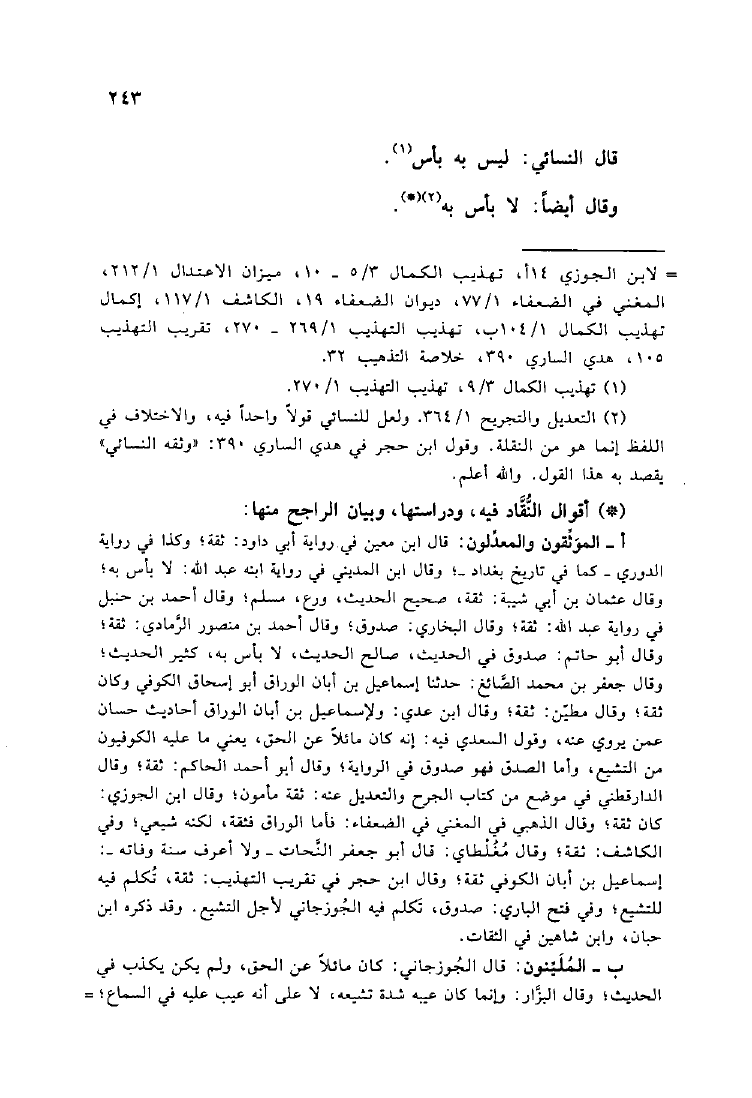 ٢٤٣
قال النسائي: ليس به بأس(١).
وقال أيضاً: لا بأس به(٢)(*).
= لابن الجوزي ١٤أ، تهذيب الكمال ٥/٣ ـ ١٠، ميزان الاعتدال ٢١٢/١،
المغني في الضعفاء ٧٧/١، ديوان الضعفاء ١٩، الكاشف ١١٧/١، إكمال
تهذيب الكمال ١٠٤/١ب، تهذيب التهذيب ٢٦٩/١ ـ ٢٧٠، تقريب التهذيب
١٠٥، هدي الساري ٣٩٠، خلاصة التذهيب ٣٢.
(١) تهذيب الكمال ٩/٣، تهذيب التهذيب ٢٧٠/١.
(٢) التعديل والتجريح ٣٦٤/١. ولعل للنسائي قولاً واحداً فيه، والاختلاف في
اللفظ إنما هو من النقلة. وقول ابن حجر في هدي الساري ٣٩٠: «وثقه النسائي»
يقصد به هذا القول. والله أعلم.
(*) أقوال النُّقَّاد فيه، ودراستها، وبيان الراجح منها:
أ ـ الموَثِّقون والمعدِّلون: قال ابن معين في رواية أبي داود: ثقة؛ وكذا في رواية
الدوري ـ كما في تاريخ بغداد ـ؛ وقال ابن المديني في رواية ابنه عبد الله: لا بأس به؛
وقال عثمان بن أبي شيبة: ثقة، صحيح الحديث، ورع، مسلم؛ وقال أحمد بن حنبل
في رواية عبد الله: ثقة؛ وقال البخاري: صدوق؛ وقال أحمد بن منصور الرَّمادي: ثقة؛
وقال أبو حاتم: صدوق في الحديث، صالح الحديث، لا بأس به، كثير الحديث؛
وقال جعفر بن محمد الصَّائغ: حدثنا إسماعيل بن أبان الوراق أبو إسحاق الكوفي وكان
ثقة؛ وقال مطيّن: ثقة؛ وقال ابن عدي: ولإسماعيل بن أبان الوراق أحاديث حسان
عمن يروي عنه، وقول السعدي فيه: إنه كان مائلاً عن الحق، يعني ما عليه الكوفيون
من التشيع، وأما الصدق فهو صدوق في الرواية؛ وقال أبو أحمد الحاكم: ثقة؛ وقال
الدارقطني في موضع من كتاب الجرح والتعديل عنه: ثقة مأمون؛ وقال ابن الجوزي:
كان ثقة؛ وقال الذهبي في المغني في الضعفاء: فأما الوراق فثقة، لكنه شيعي؛ وفي
الكاشف: ثقة؛ وقال مُغُلْطاي: قال أبو جعفر النَّحات ـ ولا أعرف سنة وفاته ـ:
إسماعيل بن أبان الكوفي ثقة؛ وقال ابن حجر في تقريب التهذيب: ثقة، تُكلم فيه
للتشيع؛ وفي فتح الباري: صدوق، تَكلم فيه الجُوزجاني لأجل التشيع. وقد ذكره ابن
حبان، وابن شاهين في الثقات.
ب ـ المُلَيِّنون: قال الجُوزجاني: كان مائلاً عن الحق، ولم يكن يكذب في
الحديث؛ وقال البزَّار: وإنما كان عيبه شدة تشيعه، لا على أنه عيب عليه في السماع؛ =